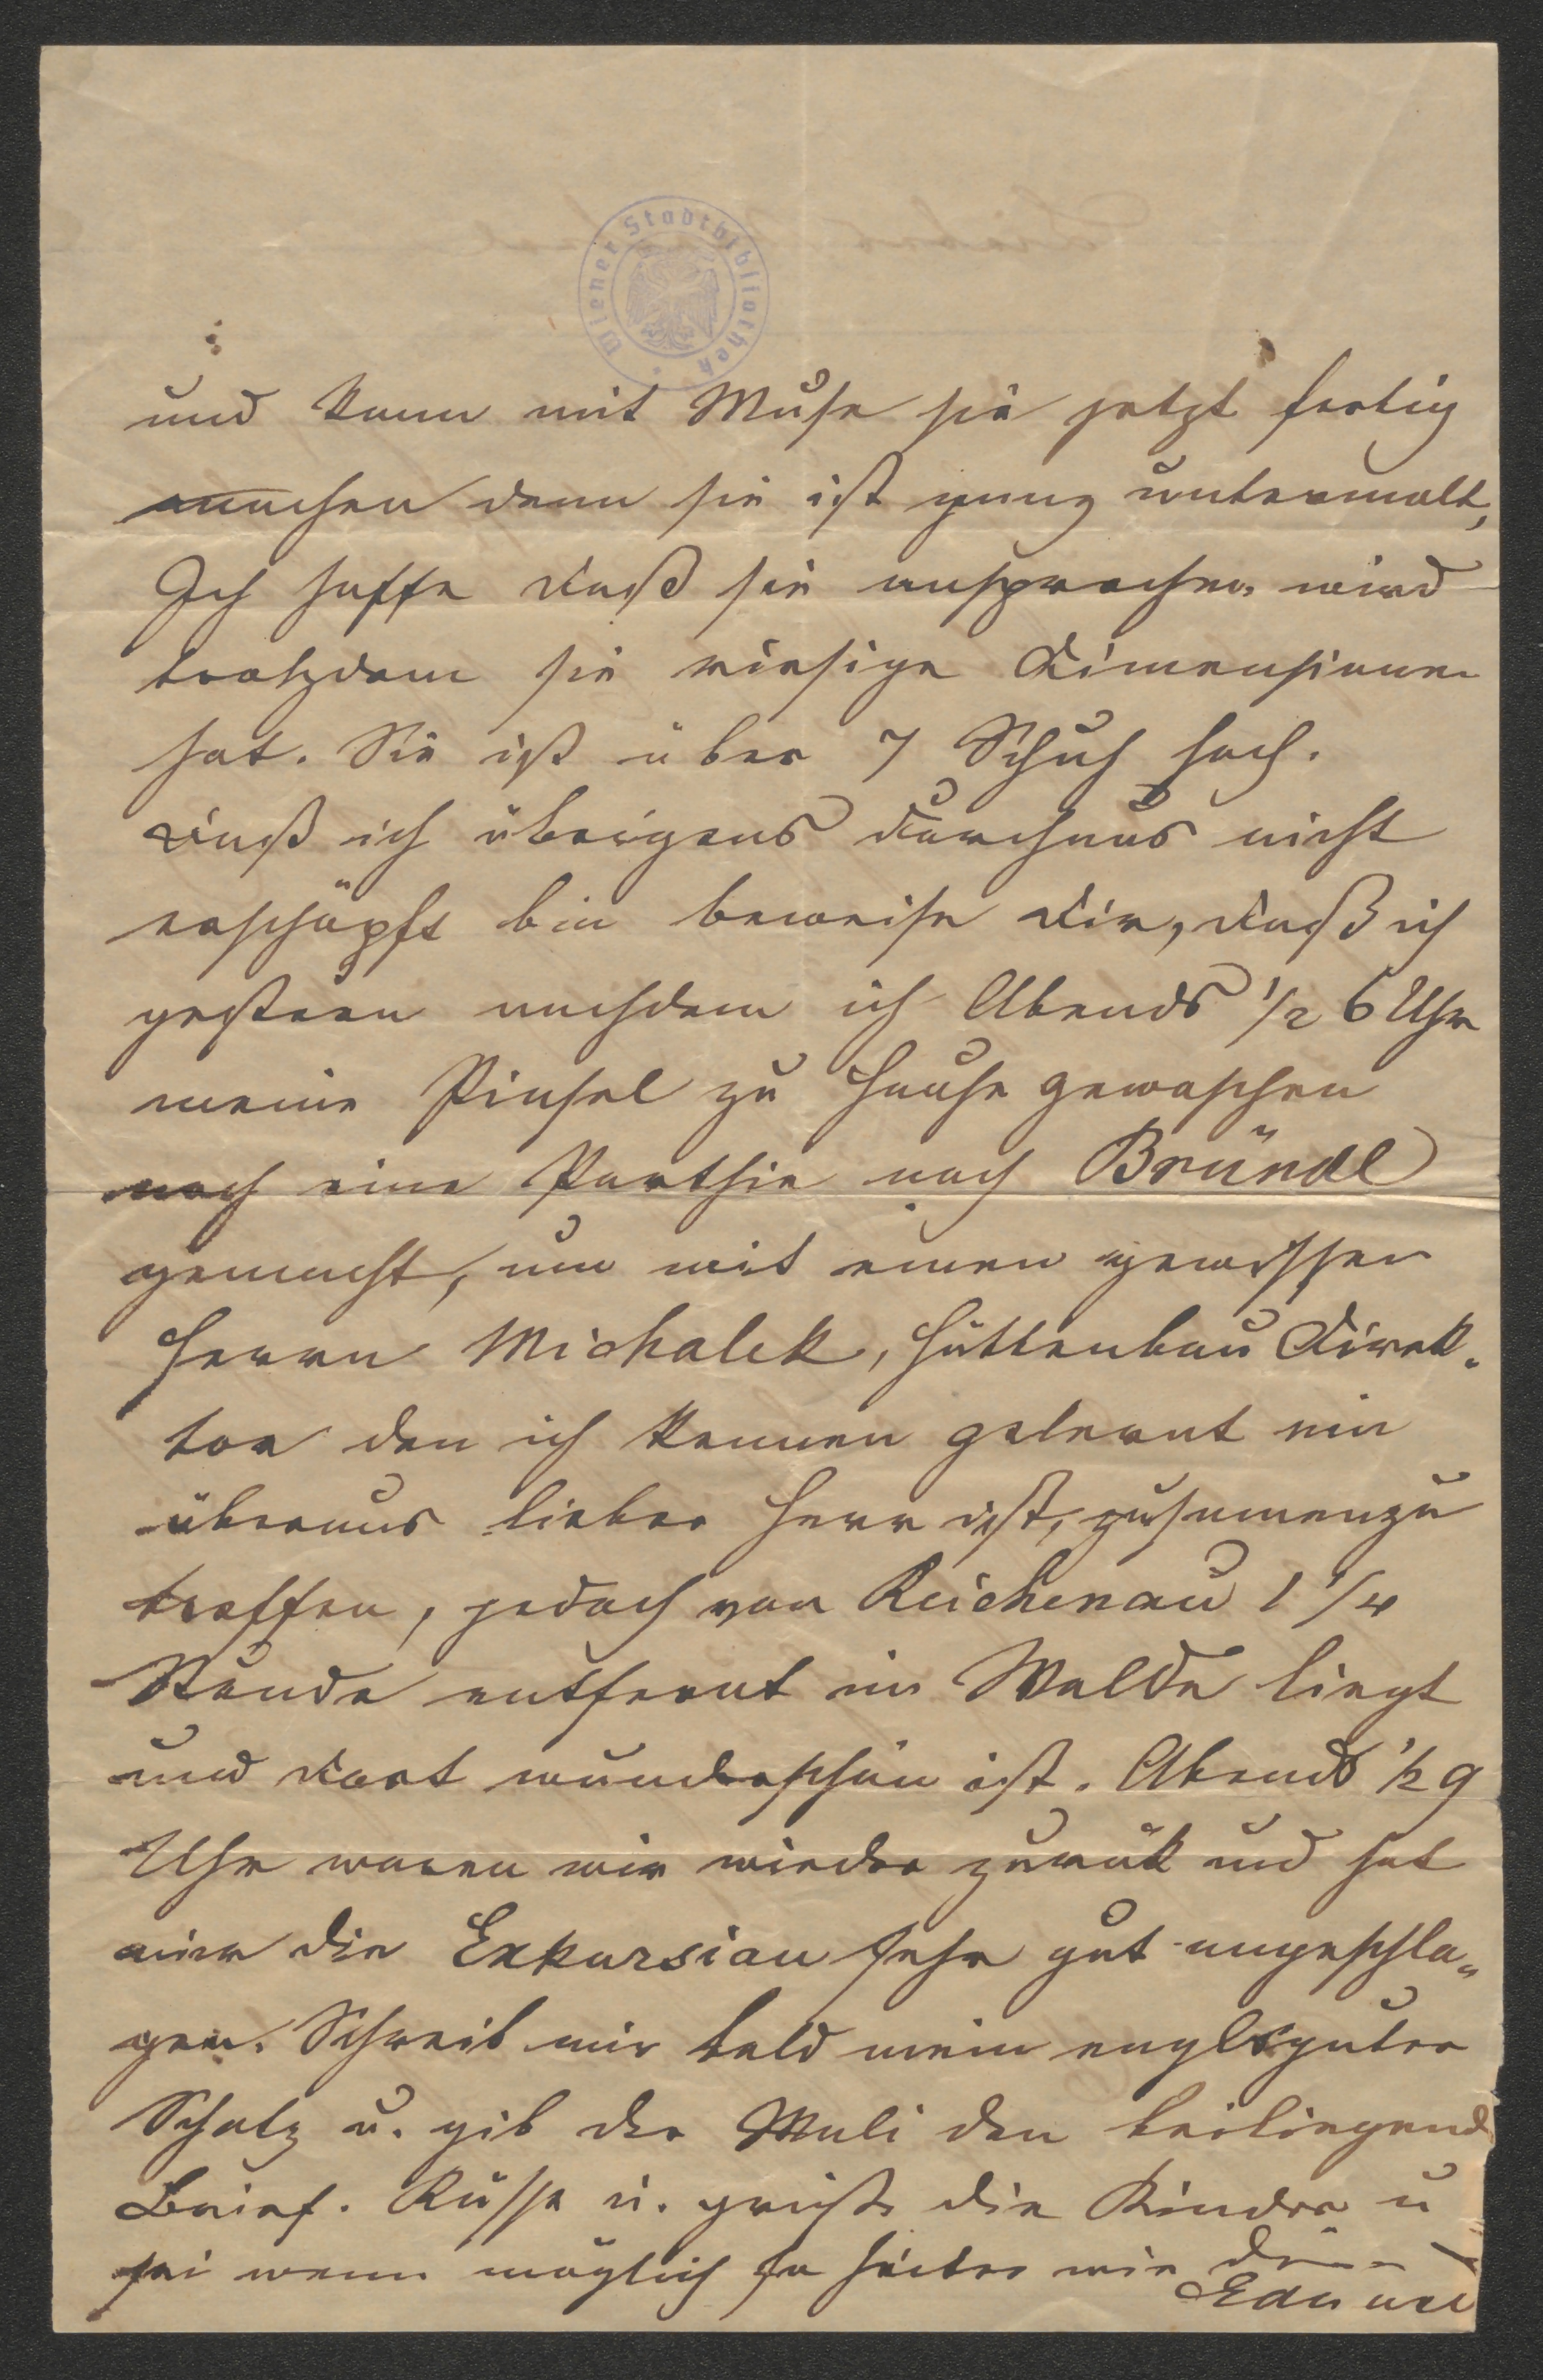 Wiener Stadtbibliothek
und kann mit Muse sie jetzt fertig
machen denn sie ist ganz untermalt,
Ich hoffe daß sie ansprechen wird
trotzdem sie riesige Dimensionen
hat. Sie ist über 7 Schuh hoch.
Daß ich übrigens durchaus nicht
erschöpft bin beweise Dir, daß ich
gestern nachdem ich Abends 1/2 6 Uhr
meine Pinsel zu Hause gewaschen
noch eine Parthie nach Bründl
gemacht, um mit einen gewissen
Herrn Michalek, Hüttenbau Direk-
tor den ich kennen gelernt ein
überaus lieber Herr ist, zusamenzu
treffen, jedoch von Reichenau 1 1/4
Stunde entfernt im Walde liegt
und dort wunderschön ist. Abends 1/2 9
Uhr waren wir wieder zurük und hat
mir die Exkursion sehr gut angeschla-
gen. Schreib mir bald mein englsguter
Schatz u. gib der Mali den beiliegend
Brief. Küsse u. grüße die Kinder u
sei wenn möglich so heiter wie Dein
Eduard